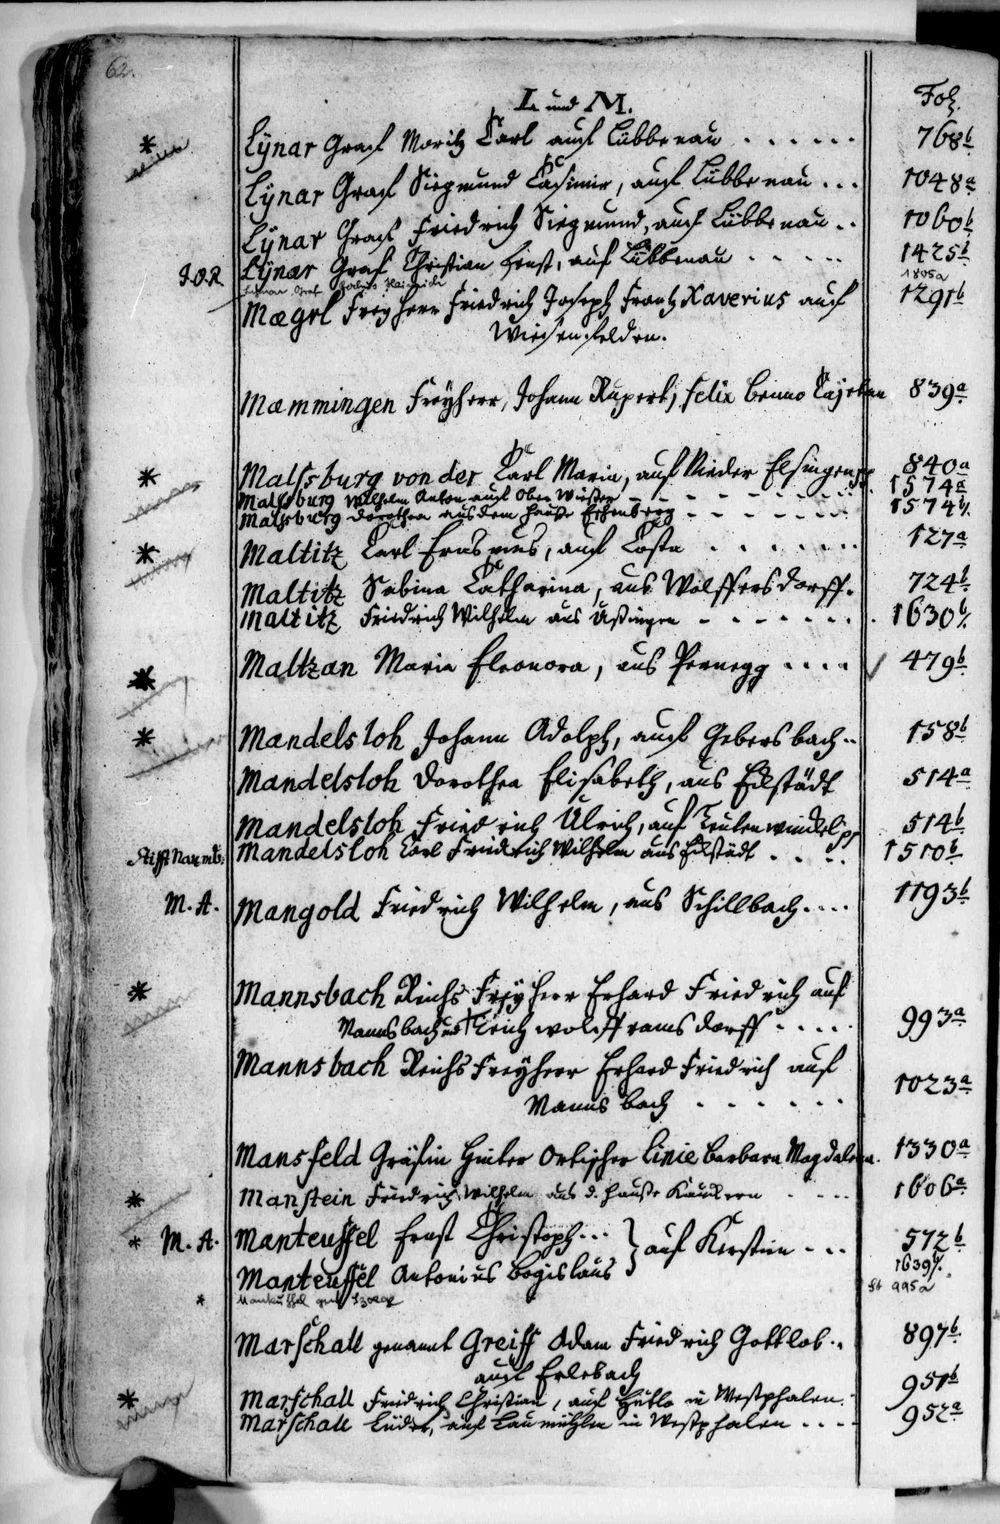 62.
L und M.
Fol.
* Lynar Graf Moritz Carl auf Lübbenau . . . . . . 768b
Lynar Graf Siegmund Casimir, auf Lübbenau . . . 1048a
Lynar Graf Friedrich Siegmund, auf Lübbenau . . 1060b
J.O.R. Lynar Graf Christian Ernst, auf Lübbenau . . . . . 1425b
Lynar Graf Heinrich 1805a
Mægrl Freyherr Friedrich Joseph Frantz Xaverius auf 1291b
Wiesenfelden.
Mæmmingen Freyherr, Johann Rupert, Felix Benno Cajetan 839a
* Malsburg von der Carl Maria, auf Nieder Elsingen pp 840a
Malsburg Wilhelm Anton auf Ober - - - - - - 1574a
Malsburg Dorothea aus dem Hause Escheberg - - - - - - 1574b
* Maltitz Carl Erasmus, auf Costa . . . . . . 127a
Maltitz Sabina Catharina, aus Wolffersdorff. 724b
Maltitz Friedrich Wilhelm aus - - - - - - 1630b
* Maltzan Maria Eleonora, aus Pernegg . . . . 479b
* Mandelsloh Johann Adolph, auf Gebersbach . . 158b
Mandelsloh Dorothea Elisabeth, aus Eckstädt 514a
Mandelsloh Friedrich Ulrich, auf Teutenwinckel pp 514b
Stifft Naumb: Mandelsloh Carl Friedrich Wilhelm aus Eckstädt . . . . 1510b
M. A. Mangold Friedrich Wilhelm, aus Schillbach . . . . 1193b
* Mannsbach Reichs Freyherr Erhard Friedrich auf
Mannsbach und Teichwolfframsdorff . . . . . 993a
Mannsbach Reichs Freyherr Erhard Friedrich auf
Mannsbach . . . . . . 1023a
Mansfeld Gräfin Hinter Ortischer Linie Barbara Magdalena. 1330a
* Manstein Friedrich Wilhelm aus d. Hause - - - - 1606a
* M. A. Manteuffel Ernst Christoph . . . } auf Kerstin . . . 572b
Manteuffel Antonius Bogislaus 1639b
* Manteuffel gen. Szoege 995a
Marschall genannt Greiff Adam Friedrich Gottlob . . 897b
auf Erlebach
* Marschall Friedrich Christian, auf Hutlo in Westphalen. 951b
Marschall Lüder, auf Laumühlen in Westphalen . . . . 952a